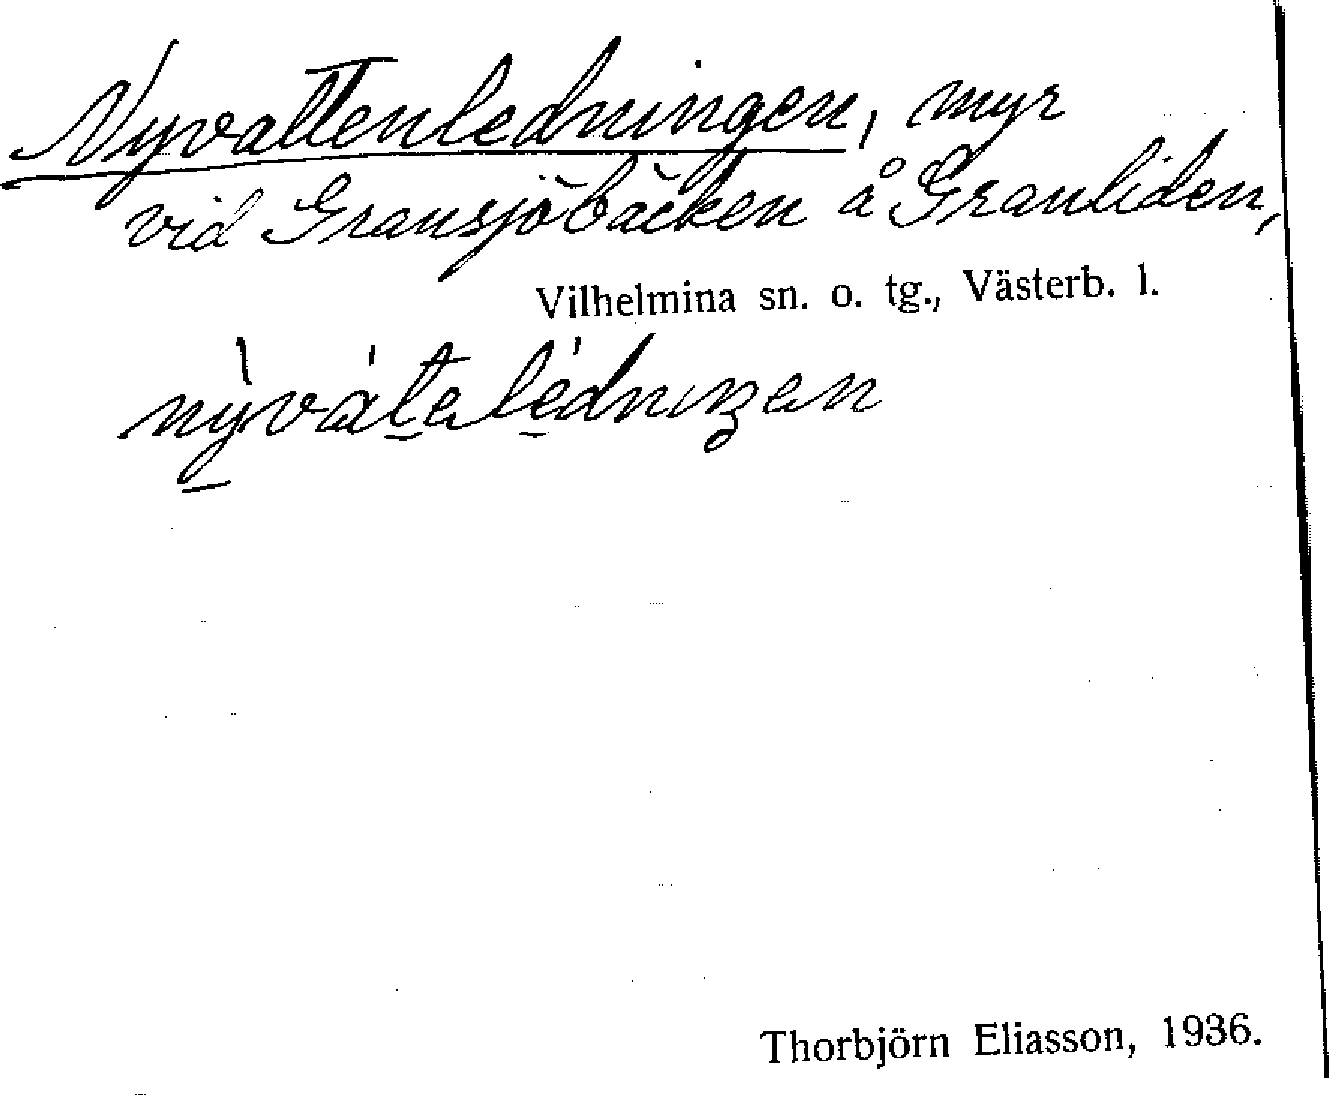 Nyvattenledningen, myr
vid Gransjöbäcken å Granliden,
Vilhelmina sn. o. tg., Västerb. l.
Thorbjörn Eliasson, 1936.